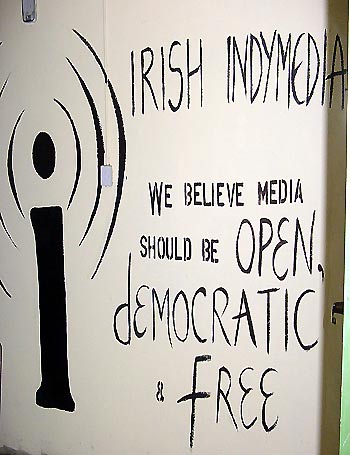 IRISH INDYMEDIA
WE BELIEVE MEDIA
SHOULD BE OPEN,
dEMOCRATIC
& FREE